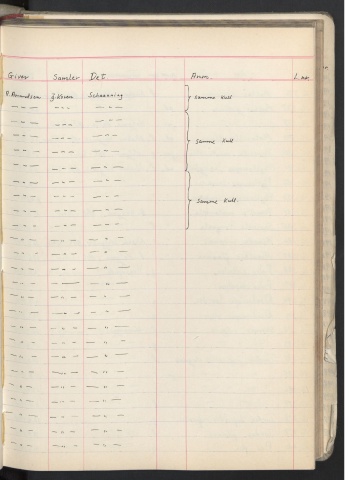 Giver Samler Det. Anm. L. nr.
R. Amundsen J. Koren Schaanning Samme Kull
— " — — " — — " —
— " — — " — — " —
— " — — " — — " — Samme Kull
— " — — " — — " —
— " — — " — — " —
— " — — " — — " —
— " — — " — — " — Samme Kull.
— " — — " — — " —
— " — — " — — " —
— " — — " — — " —
— " — — " — — " —
— " — — " — — " —
— " — — " — — " —
— " — — " — — " —
— " — — " — — " —
— " — — " — — " —
— " — — " — — " —
— " — — " — — " —
— " — — " — — " —
— " — — " — — " —
— " — — " — — " —
— " — — " — — " —
— " — — " — — " —
— " — — " — — " —